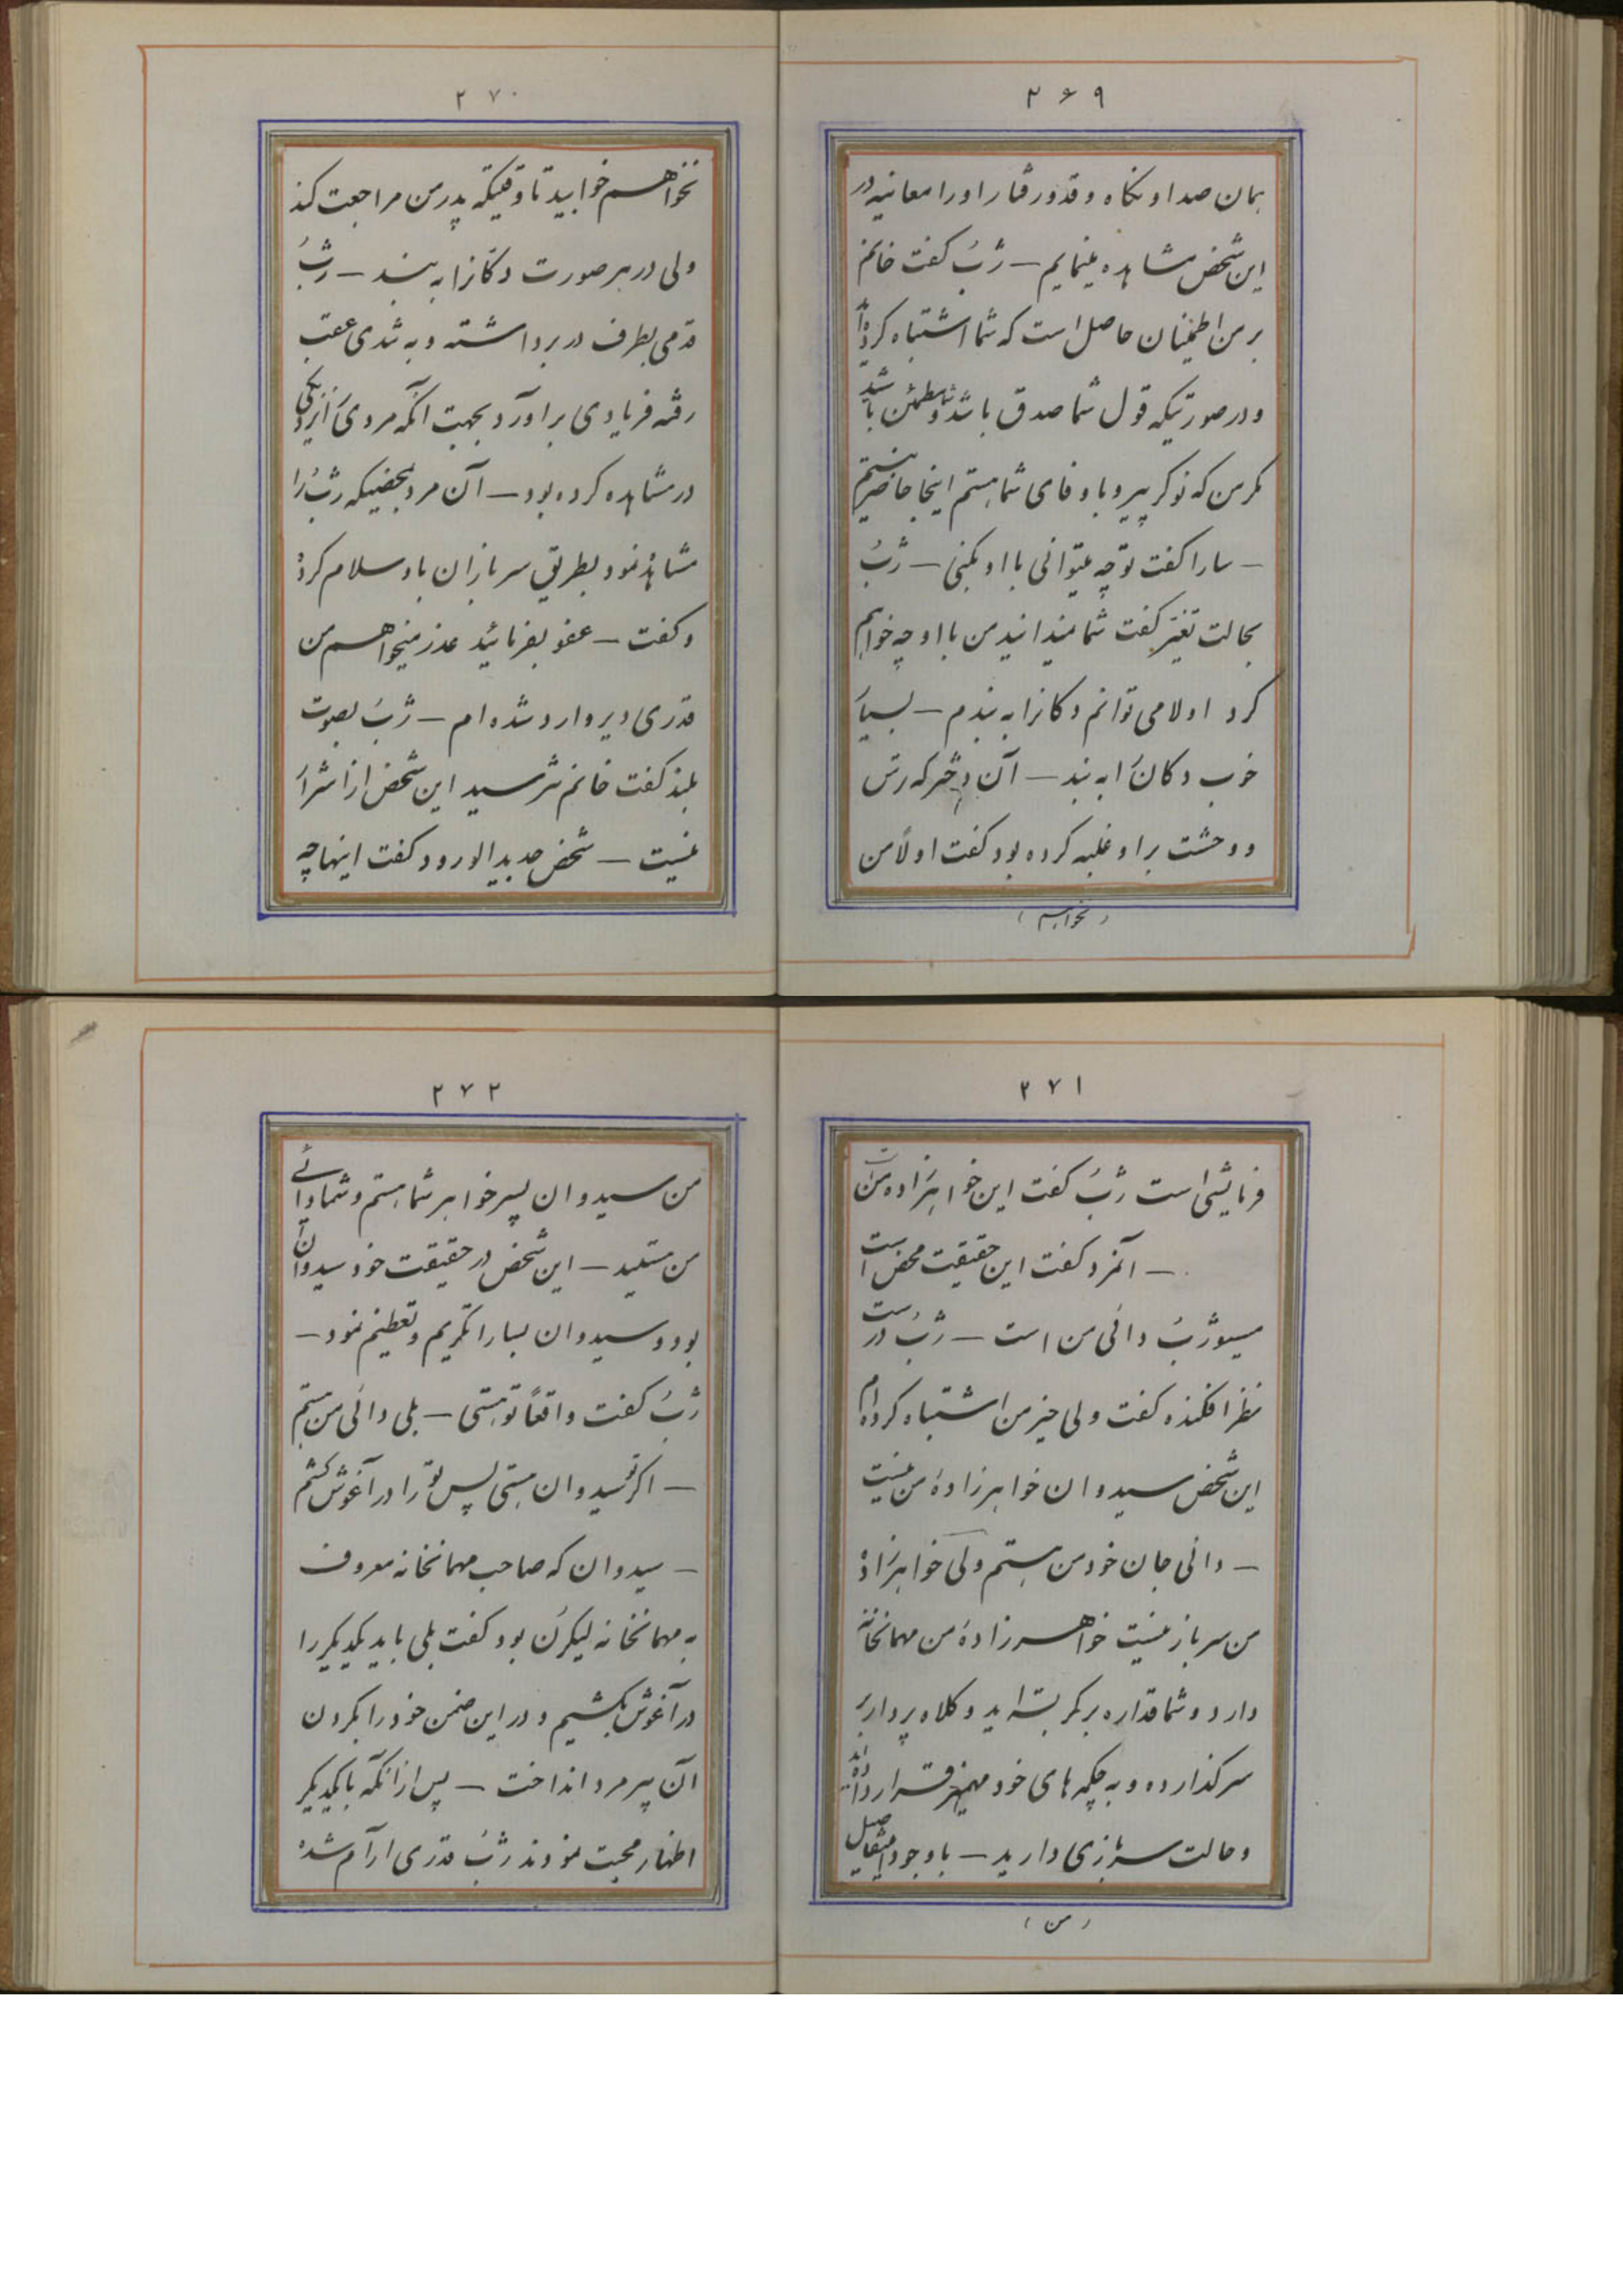 ۲۶۹
همان صدا و نگاه و قد و رفتار او را معاینه در
این شخص مشاهده مینمایم – ژبُ گفت خانم
بر من اطمینان حاصل است که شما اشتباه کرده‌اید
و در صورتیکه قول شما صدق باشد شما مطمئن باشید
مگر من که نوکر پیر و با وفای شما هستم اینجا حاضر نیستم
– سارا گفت تو چه میتوانی با او بکنی – ژبُ
بحالت تغیر گفت شما میدانید من با او چه خواهم
کرد اولا می توانم دکانرا به بندم – بسیار
خوب دکان را به بند – آن دختر که ترس
و وحشت بر او غلبه کرده بود گفت اولاً من
(نخواهم)
۲۷۰
نخواهم خوابید تا وقتیکه پدر من مراجعت کند
ولی در هر صورت دکانرا به بند – ژبُ
قدمی بطرف در برداشته و به تندی عقب
رفته فریادی براورد بجهت آنکه مردی را نزدیکی
در مشاهده کرده بود – آن مرد بمحضیکه ژبُ را
مشاهده نمود بطریق سربازان باو سلام کرده
و گفت – عفو بفرمائید عذر میخواهم من
قدری دیر وارد شده ام – ژبُ بصوت
بلند گفت خانم نترسید این شخص از اشرار
نیست – شخص جدید الورود گفت اینها چه
۲۷۱
فرمایشی است ژبُ گفت این خواهرزاده من است
– آنمرد گفت این حقیقت محض است
مسیو ژبُ دائی من است – ژبُ درست
نظر افکنده گفت ولی خیر من اشتباه کرده‌ام
این شخص سیدوان خواهرزادهٔ من نیست
– دائی جان خود من هستم ولی خواهرزادهٔ
من سرباز نیست خواهرزادهٔ من مهمانخانه
دارد و شما قداره بر کمر بسته اید و کلاه پردار بر
سر گذارده و به چکمه های خود مهمیز قرار داده‌اید
و حالت سربازی دارید – با وجود اینتفاصیل
(من)
۲۷۲
من سیدوان پسر خواهر شما هستم و شما دائی
من هستید – این شخص در حقیقت خود سیدوان
بود و سیدوان بسارا تکریم و تعظیم نمود –
ژبُ گفت واقعاً تو هستی – بلی دائی من هستم
– اگر تو سیدوان هستی پس تو را در آغوش کشم
– سیدوان که صاحب مهمانخانه معروف
به مهمانخانه لیکرن بود گفت بلی باید یکدیگر را
در آغوش بکشیم و در این ضمن خود را بگردن
آن پیر مرد انداخت – پس از آنکه با یکدیگر
اظهار محبت نمودند ژبُ قدری ارآم شده